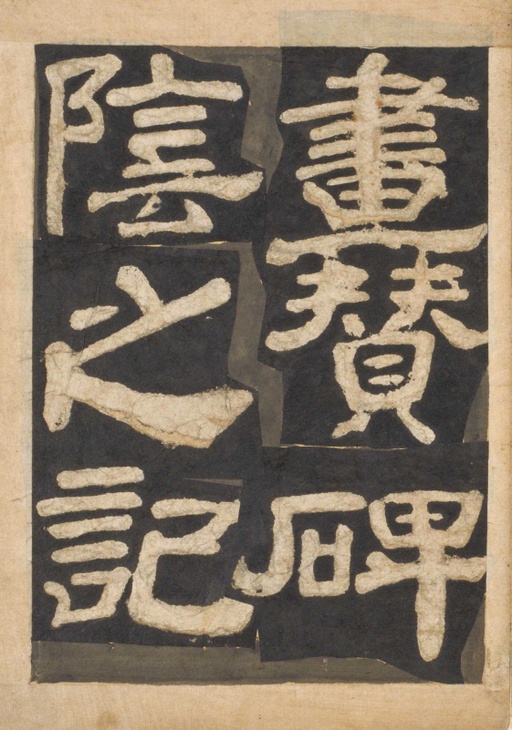 畫賛碑
陰之記